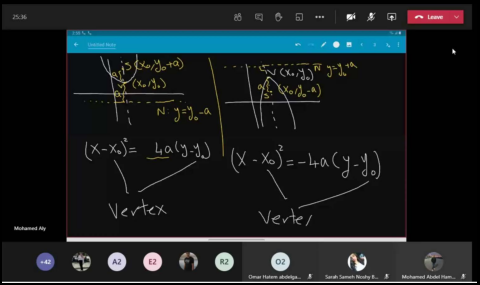 25:36
Leave
Untitled Note
S(x₀, y₀+a)
V(x₀, y₀)
N: y=y₀-a
V(x₀, y₀)
N: y=y₀+a
S(x₀, y₀-a)
(x-x₀)² = 4a(y-y₀)
(x-x₀)² = -4a(y-y₀)
Vertex
Vertex
Mohamed Aly
+42
A2
E2
R2
O2
Omar Hatem abdelga...
Sarah Sameh Noshy B...
Mohamed Abdel Ham...